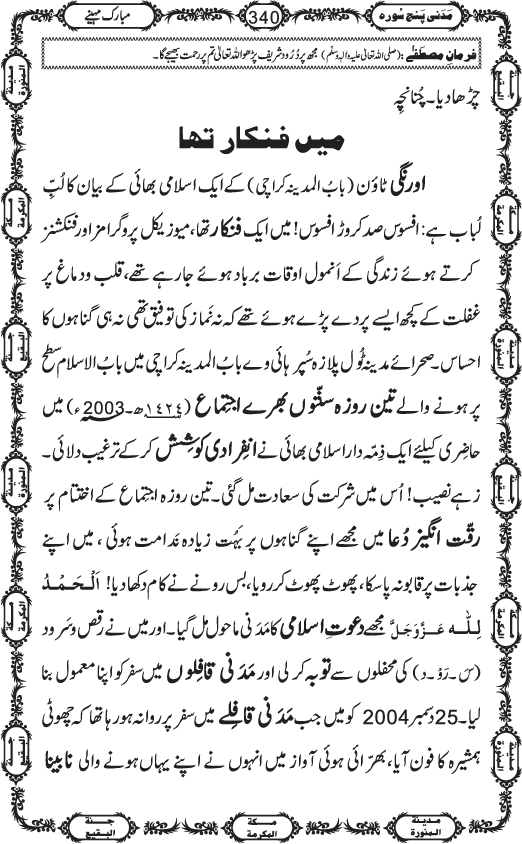 مَدَنی پنج سُورہ
340
مبارک مہینے
فرمانِ مصطفٰے : (صلی اللہ تعالیٰ علیہ واٰلہٖ وسلّم) مجھ پر دُرُود شریف پڑھو اللہ تعالیٰ تم پر رحمت بھیجے گا۔
چڑھا دیا۔ چُنانچِہ
میں فنکار تھا
اورنگی ٹاؤن (بابُ المدینہ کراچی) کے ایک اسلامی بھائی کے بیان کا لُبِّ
لُباب ہے: افسوس صد کروڑ افسوس! میں ایک فنکار تھا، میوزیکل پروگرامز اور فنکشنز
کرتے ہوئے زندگی کے اَنمول اوقات برباد ہوئے جا رہے تھے، قلب و دماغ پر
غفلت کے کچھ ایسے پردے پڑے ہوئے تھے کہ نہ نَماز کی توفیق تھی نہ ہی گناہوں کا
احساس۔ صحرائے مدینہ ٹول پلازہ سُپر ہائی وے بابُ المدینہ کراچی میں بابُ الاسلام سطح
پر ہونے والے تین روزہ سنّتوں بھرے اجتِماع (١٤٢٤ھ۔2003ء) میں
حاضِری کیلئے ایک ذِمّہ دار اسلامی بھائی نے اِنفِرادی کوشِش کر کے ترغیب دلائی۔
زہے نصیب! اُس میں شرکت کی سعادت مل گئی۔ تین روزہ اجتِماع کے اختتام پر
رِقّت انگیز دُعا میں مجھے اپنے گناہوں پر بَہُت زیادہ نَدامت ہوئی، میں اپنے
جذبات پر قابو نہ پا سکا، پھوٹ پھوٹ کر رویا، بس رونے نے کام دکھا دیا! اَلْحَمْدُ
لِلّٰہ عَزَّوَجَلَّ مجھے دعوتِ اسلامی کا مَدَنی ماحول مل گیا۔ اور میں نے رقص و سَرود
(سَ۔ رَوْ۔ د) کی محفلوں سے توبہ کر لی اور مَدَنی قافِلوں میں سفر کو اپنا معمول بنا
لیا۔ 25 دسمبر 2004 کو میں جب مَدَنی قافِلے میں سفر پر روانہ ہو رہا تھا کہ چھوٹی
ہمشیرہ کا فون آیا، بھرّائی ہوئی آواز میں انہوں نے اپنے یہاں ہونے والی نابینا
مدینۃ المنورۃ
مکۃ المکرمۃ
جنۃ البقیع
مدینۃ المنورۃ
مکۃ المکرمۃ
جنۃ البقیع
جنۃ البقیع
مکۃ المکرمۃ
مدینۃ المنورۃ
جنۃ البقیع
مکۃ المکرمۃ
مدینۃ المنورۃ
جنۃ البقیع
مکۃ المکرمۃ
مدینۃ المنورۃ